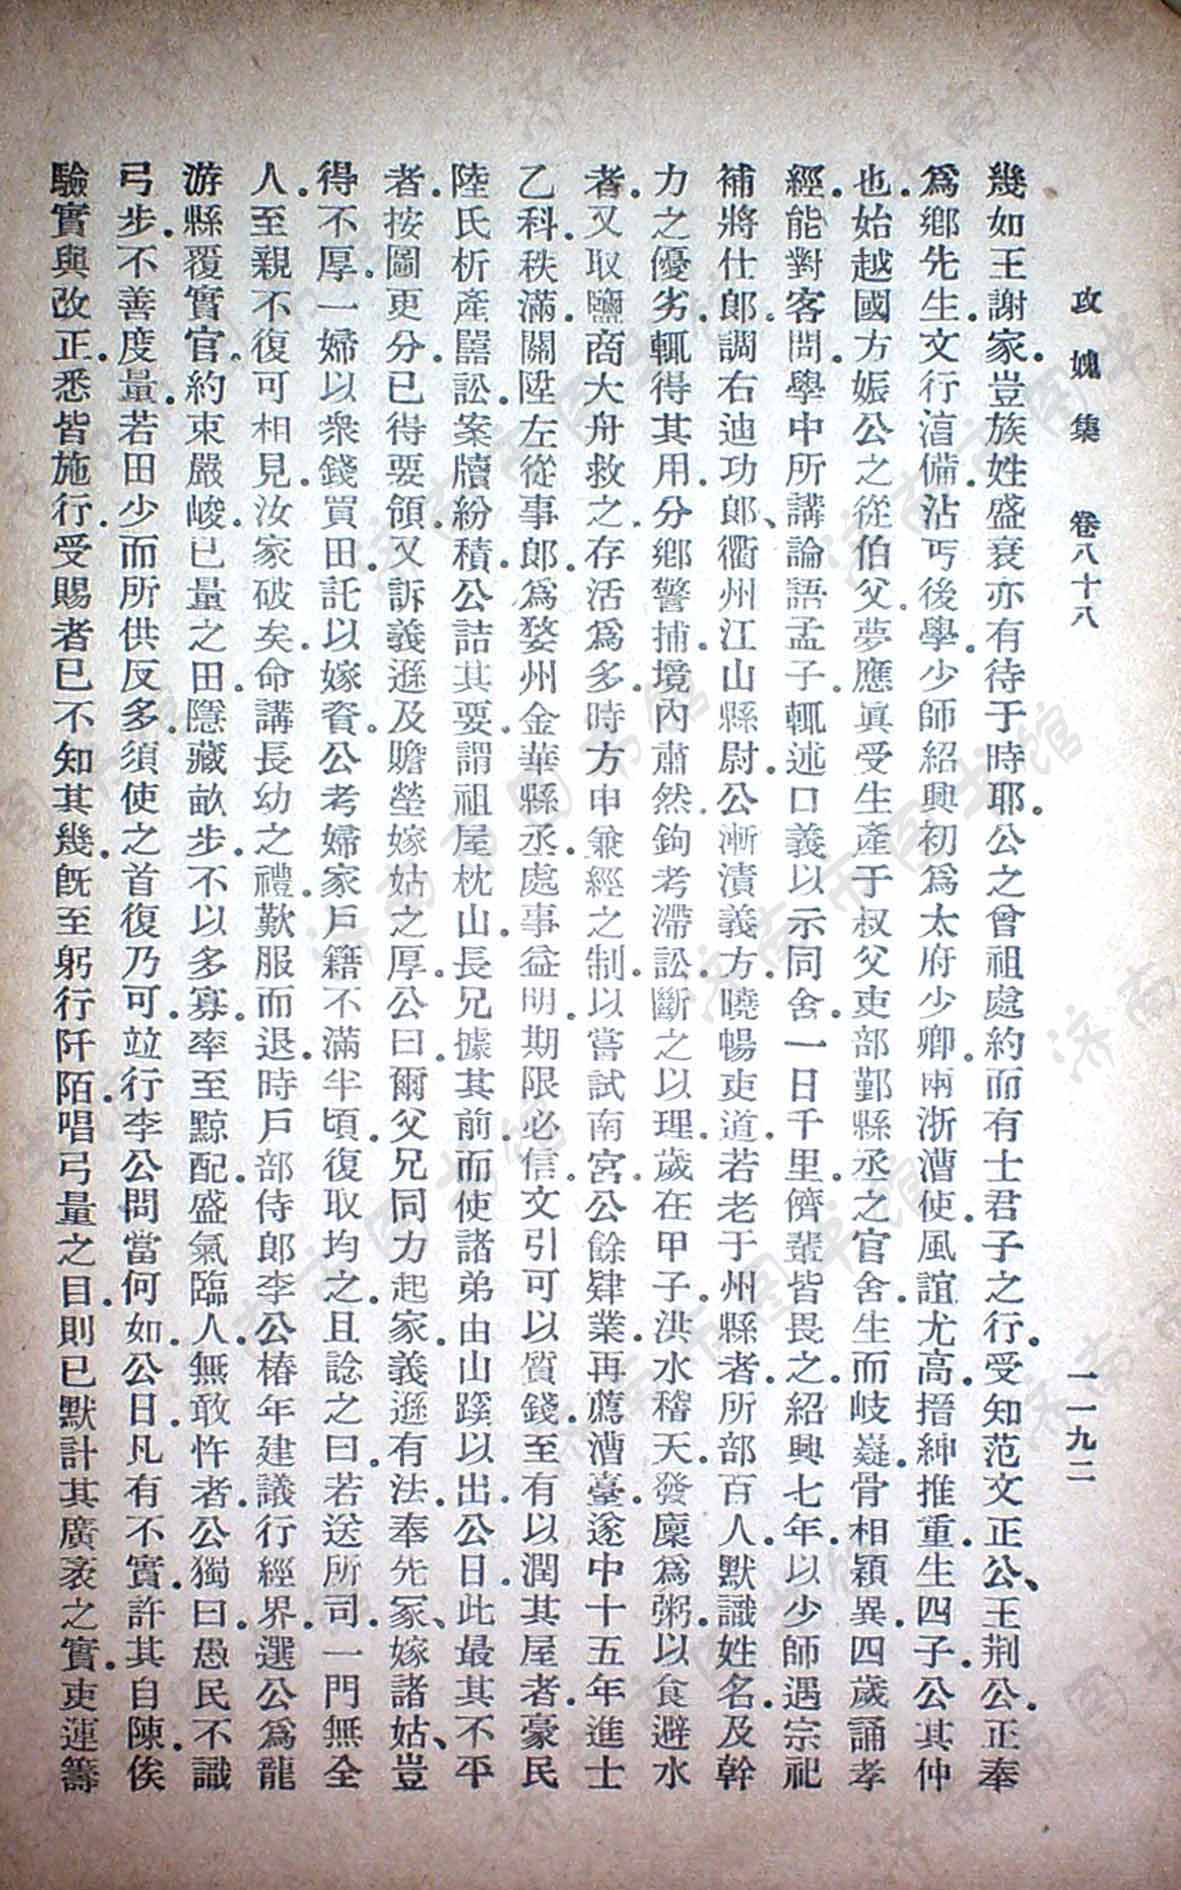 攻媿集 卷八十八 一一九二
幾如王謝家。豈族姓盛衰亦有待于時耶。公之曾祖處約而有士君子之行。受知范文正公、王荆公。正奉
爲鄉先生。文行淯備。沾丐後學。少師紹興初爲太府少卿。兩浙漕使。風誼尤高。搢紳推重。生四子。公其仲
也。始越國方娠。公之從伯父。夢應眞受生。產于叔父吏部鄞縣丞之官舍。生而岐嶷。骨相穎異。四歲誦孝
經。能對客問。學中所講論語孟子。輒述口義以示同舍。一日千里。儕輩皆畏之。紹興七年。以少師遇宗祀
補將仕郞。調右迪功郞、衢州江山縣尉。公漸漬義方。曉暢吏道。若老于州縣者。所部百人。默識姓名。及幹
力之優劣。輒得其用。分鄉警捕。境內肅然。鉤考滯訟。斷之以理。歲在甲子。洪水稽天。發廩爲粥。以食避水
者。又取鹽商大舟救之。存活爲多。時方申兼經之制。以嘗試南宮。公餘肄業。再薦漕臺。遂中十五年進士
乙科。秩滿。關陞左從事郞。爲婺州金華縣丞。處事益明。期限必信。文引可以質錢。至有以潤其屋者。豪民
陸氏析產嚚訟。案牘紛積。公詰其要。謂祖屋枕山。長兄據其前。而使諸弟由山蹊以出。公日。此最其不平
者。按圖更分。已得要領。又訴義遜及贍塋嫁姑之厚。公曰。爾父兄同力起家。義遜有法。奉先冢、嫁諸姑、豈
得不厚。一婦以衆錢買田。託以嫁資。公考婦家戶籍不滿半頃。復取均之。且諗之曰。若送所司。一門無全
人。至親不復可相見。汝家破矣。命講長幼之禮。歎服而退。時戶部侍郞李公椿年建議行經界。選公爲龍
游縣覆實官。約束嚴峻。已量之田。隱藏畝步。不以多寡。率至黥配。盛氣臨人。無敢忤者。公獨曰。愚民不識
弓步。不善度量。若田少而所供反多。須使之首復乃可竝行。李公問當何如。公日。凡有不實。許其自陳。俟
驗實與改正。悉皆施行。受賜者已不知其幾。旣至躬行阡陌。唱弓量之目。則已默計其廣袤之實。吏運籌